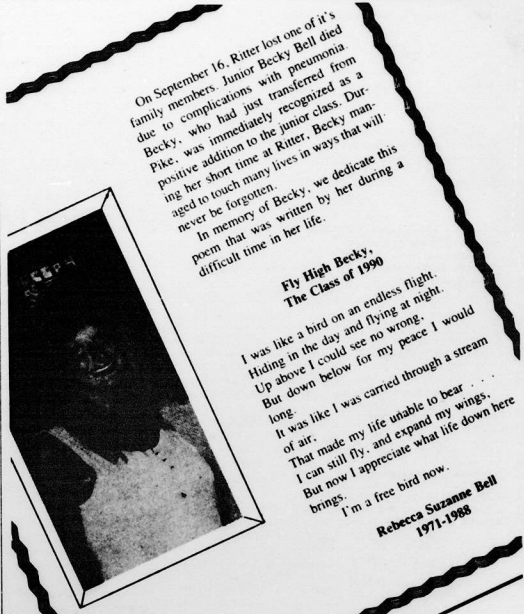 On September 16, Ritter lost one of it's
family members. Junior Becky Bell died
due to complications with pneumonia.
Becky, who had just transferred from
Pike, was immediately recognized as a
positive addition to the junior class. Dur-
ing her short time at Ritter, Becky man-
aged to touch many lives in ways that will
never be forgotten.
In memory of Becky, we dedicate this
poem that was written by her during a
difficult time in her life.
Fly High Becky,
The Class of 1990
I was like a bird on an endless flight.
Hiding in the day and flying at night.
Up above I could see no wrong,
But down below for my peace I would
long.
It was like I was carried through a stream
of air,
That made my life unable to bear . . .
I can still fly, and expand my wings,
But now I appreciate what life down here
brings.
I'm a free bird now.
Rebecca Suzanne Bell
1971-1988